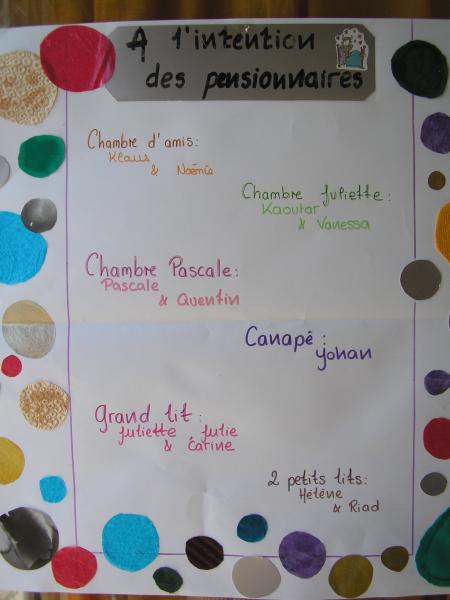 A l'intention
des pensionnaires
Chambre d'amis:
Klaus
& Noémie
Chambre Juliette:
Kaoutar
& Vanessa
Chambre Pascale:
Pascale
& Quentin
Canapé:
Yohan
Grand lit:
Juliette, Julie
& Carine
2 petits lits:
Hélène
& Riad